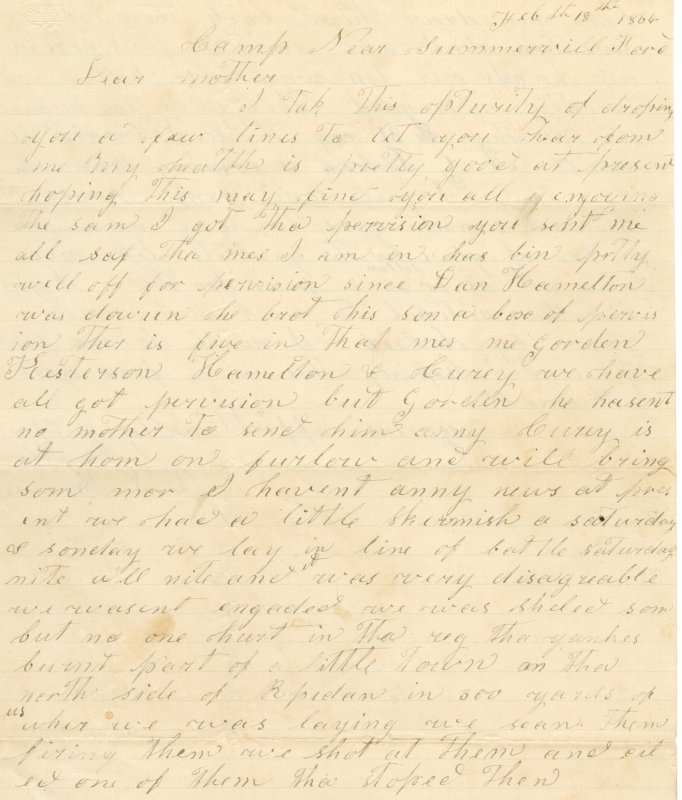 Feb th 18th 1864
Camp Near Summervill Ford
Dear Mother
I tak this opturity of droping
you a few lines to let you hear from
me my health is pretty good at present
hoping this may fine you all
the sam I got tha pervision you sent me
all saf tha mes I am in has bin pritty
well off for pervision since Dan Hamelton
was down he brot his son a box of pervis
ion ther is five in that mes me Gorden
Kesterson Hamelton & Curey we have
all got pervision but Gorden he hasent
no mother to send him anny Curey is
at hom on furlow and will bring
som mor I havent anny news at pres
ent we had a little skirmish a saturday
& sonday we lay in line of battle saturday
nite all nite and it was very disagreable
we wasent engaded we was sheled som
but no one hurt in tha reg tha yankes
burnt part of a little town on tha
north side of Rpidan in 300 yards of
us wher we was laying we sean them
firing them we shot at them and cil
ed one of them tha stoped then